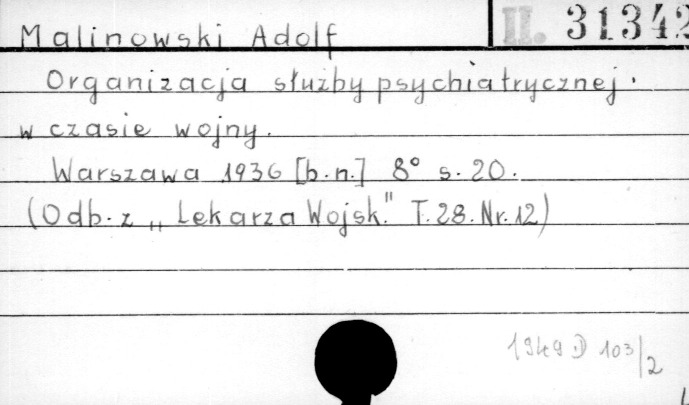 Malinowski Adolf
II. 31342
Organizacja służby psychiatrycznej.
w czasie wojny.
Warszawa 1936 [b.n.] 8° s. 20.
(Odb. z „Lekarza Wojsk." T. 28. Nr. 12)
1949 D 103/2